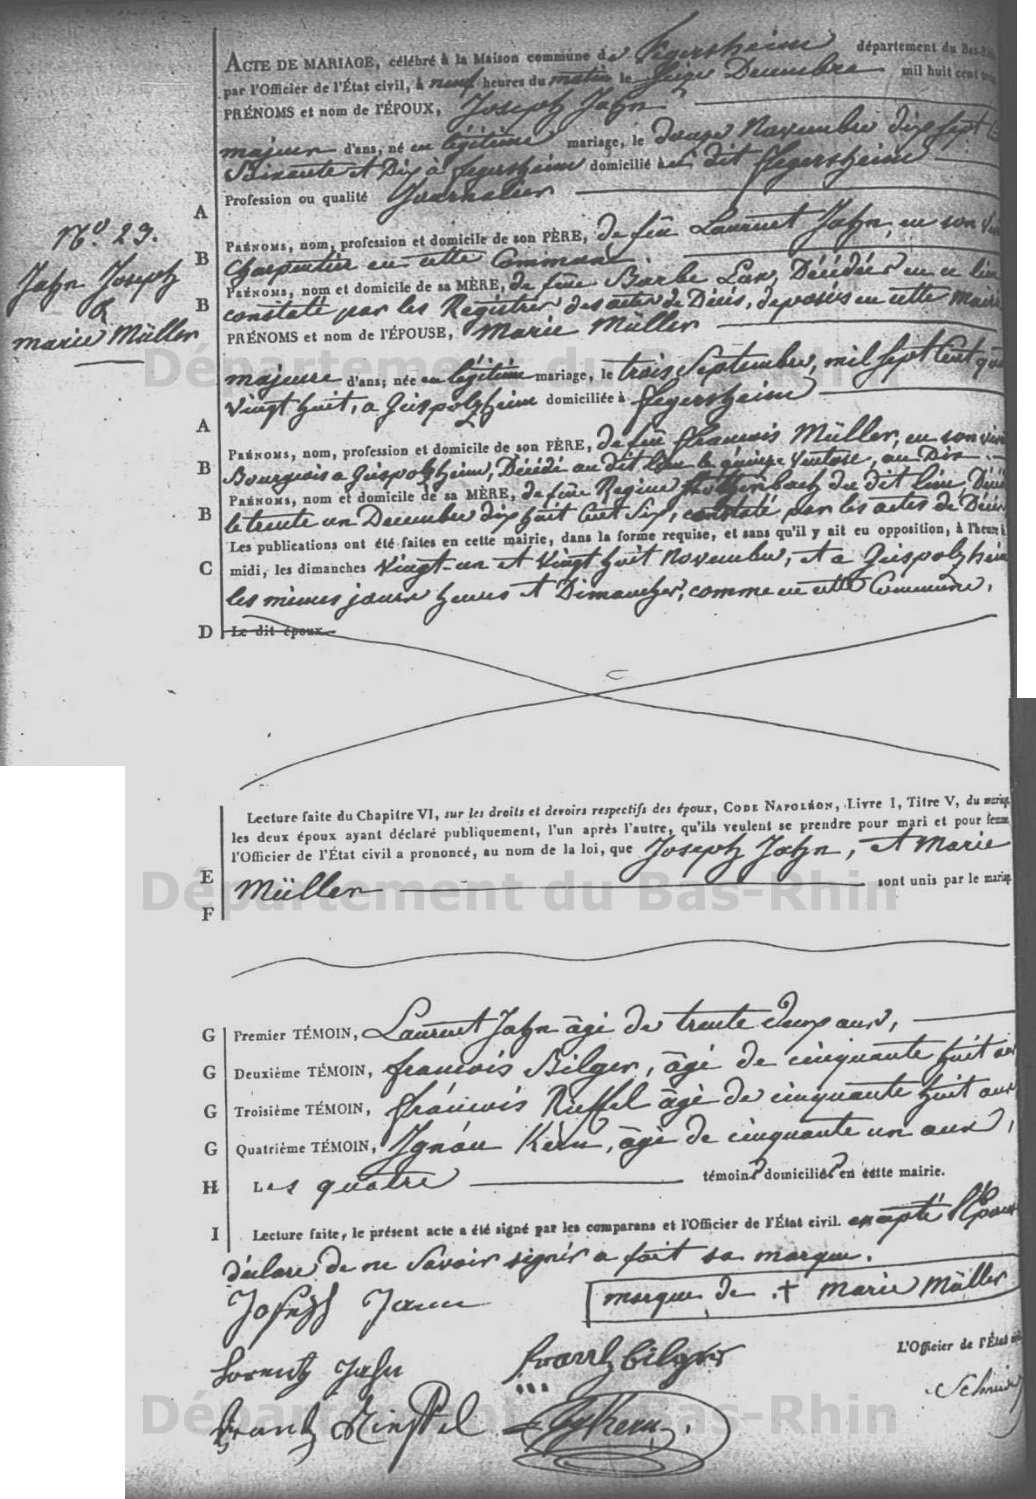 ACTE DE MARIAGE, célébré à la Maison commune de Fegersheim département du Bas-Rhin
par l'Officier de l'État civil, à neuf heures du matin le Seize Decembre mil huit cent
PRÉNOMS et nom de l'ÉPOUX, Joseph Jahn
majeur d'ans, né en légitime mariage, le douze Novembre dix Sept
Soixante et Dix à fegersheim domicilié à dit ffegersheim
Profession ou qualité Journalier
A
N.º 29.
PRÉNOMS, nom, profession et domicile de son PÈRE, de feu Laurent Jahn, en son
B
Charpentier en cette Commune
Jahn Joseph
PRÉNOMS, nom et domicile de sa MÈRE, de feue Barbe Décédée en ce lieu
B
constaté par les Registres des actes de Décès, déposés en cette Mairie
&
marie Müller
PRÉNOMS et nom de l'ÉPOUSE, Marie Müller
Département du Bas-Rhin
majeure d'ans; née en légitime mariage, le trois Septembre, mil Sept Cent
Vingt huit, a Geispolzheim domiciliée à ffegersheim
A
PRÉNOMS, nom, profession et domicile de son PÈRE, de feu ffrancois Müller, en son
B
Bourgeois a Geispolzheim, Décédé au dit lieu le quinze Ventose, an Dix
PRÉNOMS, nom et domicile de sa MÈRE, de feue Regine du dit lieu,
B
le trente un Decembre dix huit Cent Six, constaté par les actes de Décès
Les publications ont été faites en cette mairie, dans la forme requise, et sans qu'il y ait eu opposition, à l'heure
C
midi, les dimanches Vingt-un et Vingt huit Novembre, et a Geispolzheim
les mêmes jours heures et Dimanches, comme en cette Commune.
D
Le dit époux
Lecture faite du Chapitre VI, sur les droits et devoirs respectifs des époux, CODE NAPOLÉON, Livre I, Titre V, du mariage
les deux époux ayant déclaré publiquement, l'un après l'autre, qu'ils veulent se prendre pour mari et pour femme
l'Officier de l'État civil a prononcé, au nom de la loi, que Joseph Jahn, et Marie
E
Müller sont unis par le mariage
Département du Bas-Rhin
F
G Premier TÉMOIN, Laurent Jahn âgé de trente deux ans,
G Deuxième TÉMOIN, francois Bilger, âgé de cinquante huit ans
G Troisième TÉMOIN, ffrancois Rieffel âgé de cinquante huit ans
G Quatrième TÉMOIN, Ignace Kern, âgé de cinquante un ans,
H Les quatre témoins domiciliés en cette mairie.
I Lecture faite, le présent acte a été signé par les comparans et l'Officier de l'État civil. excepté l'Epouse
déclare de ne Savoir signér a fait sa marque.
Joseph Jann
marque de + marie Müller
L'Officier de l'État
Lorentz Jahn
frantz bilger
Frantz Rieffel
Kern
Département du Bas-Rhin